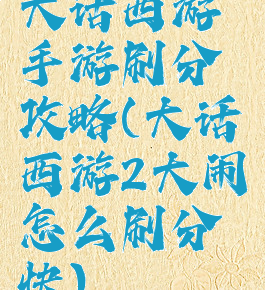 大话西游
手游刷分
攻略(大话
西游2大闹
怎么刷分
快)